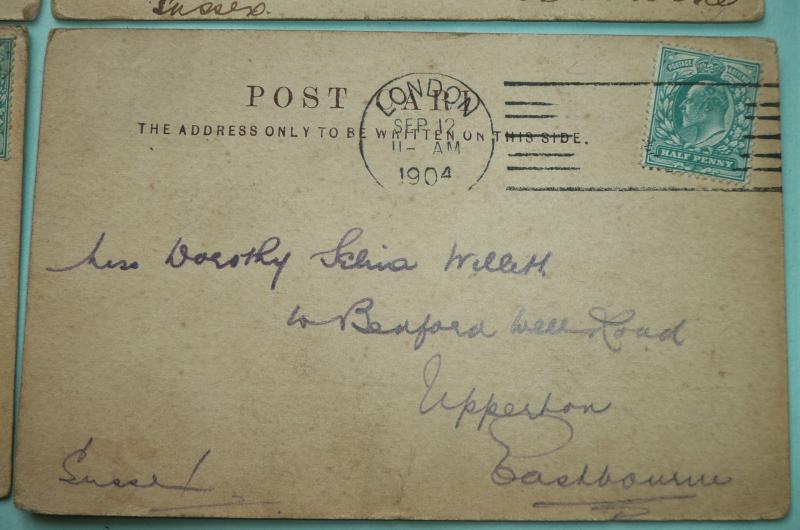 Sussex.
POST CARD
THE ADDRESS ONLY TO BE WRITTEN ON THIS SIDE.
LONDON
SEP 12
11- AM
1904
POSTAGE
HALF PENNY
Miss Dorothy Willett
Road
Upperton
Eastbourne
Sussex